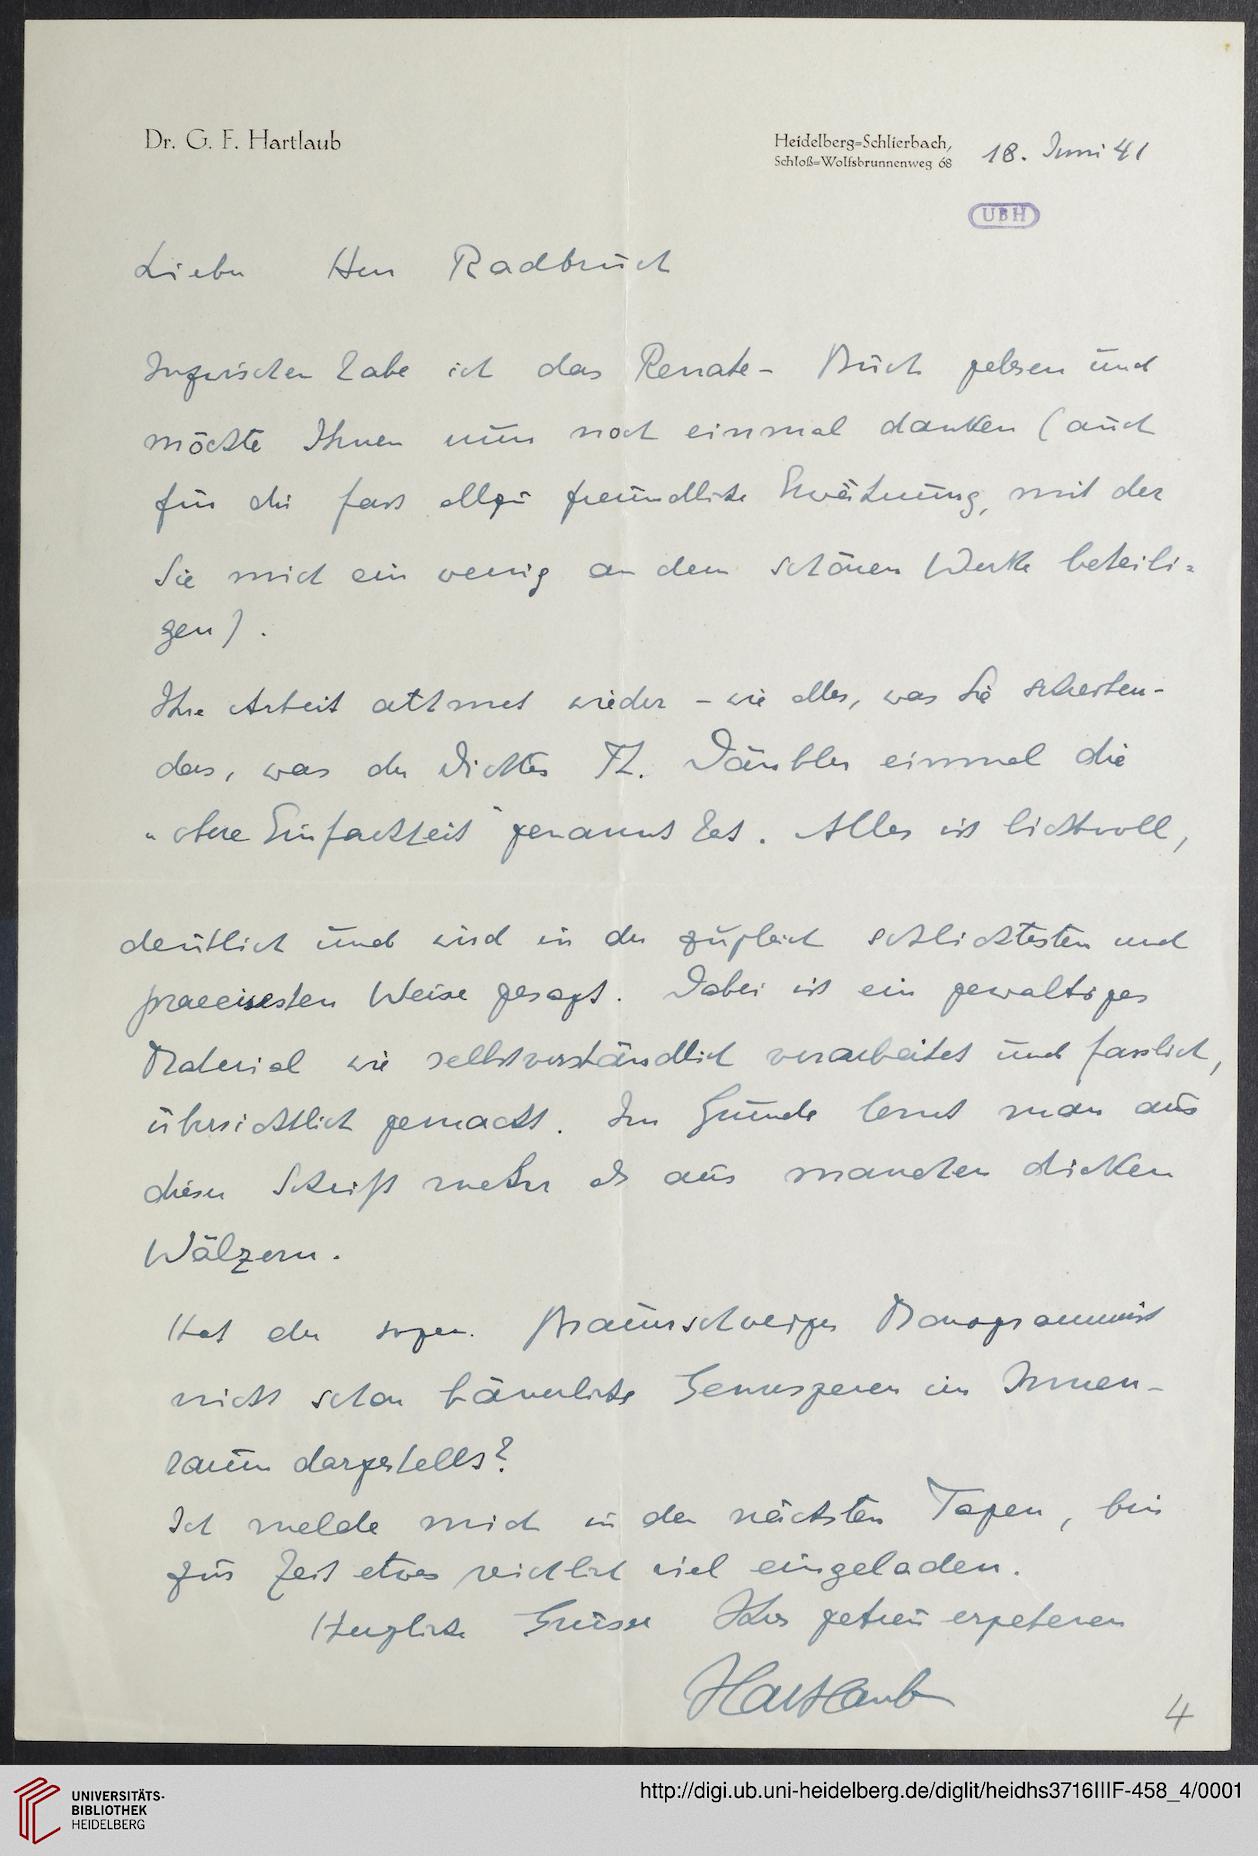 Dr. G. F. Hartlaub
Heidelberg=Schlierbach,
Schloß=Wolfsbrunnenweg 68
18. Juni 41
UBH
Lieber Herr Radbruch
Inzwischen habe ich das Renate- Buch gelesen und
möchte Ihnen nun noch einmal danken (auch
für die fast allzu freundliche Erwähnung, mit der
Sie mich ein wenig an dem schönen Werke beteili=
gen).
Ihre Arbeit athmet wieder - wie alles, was Sie schreiben -
das, was der Dichter Th. Däubler einmal die
"obere Einfachheit" genannt hat. Alles ist lichtvoll,
deutlich und wird in der zugleich schlichtesten und
praecisesten Weise gesagt. Dabei ist ein gewaltiges
Material wie selbstverständlich verarbeitet und fasslich,
übersichtlich gemacht. Im Grunde lernt man aus
dieser Schrift mehr als aus manchen dicken
Wälzern.
Hat der sogen. Braunschweiger Monogrammist
nicht schon bäuerliche Genreszenen im Innen-
raum dargestellt?
Ich melde mich in den nächsten Tagen, bin
zur Zeit etwas reichlich viel eingeladen.
Herzliche Grüsse Ihres getreu ergebenen
Hartlaub
4
UNIVERSITÄTS-
BIBLIOTHEK
HEIDELBERG
http://digi.ub.uni-heidelberg.de/diglit/heidhs3716IIIF-458_4/0001